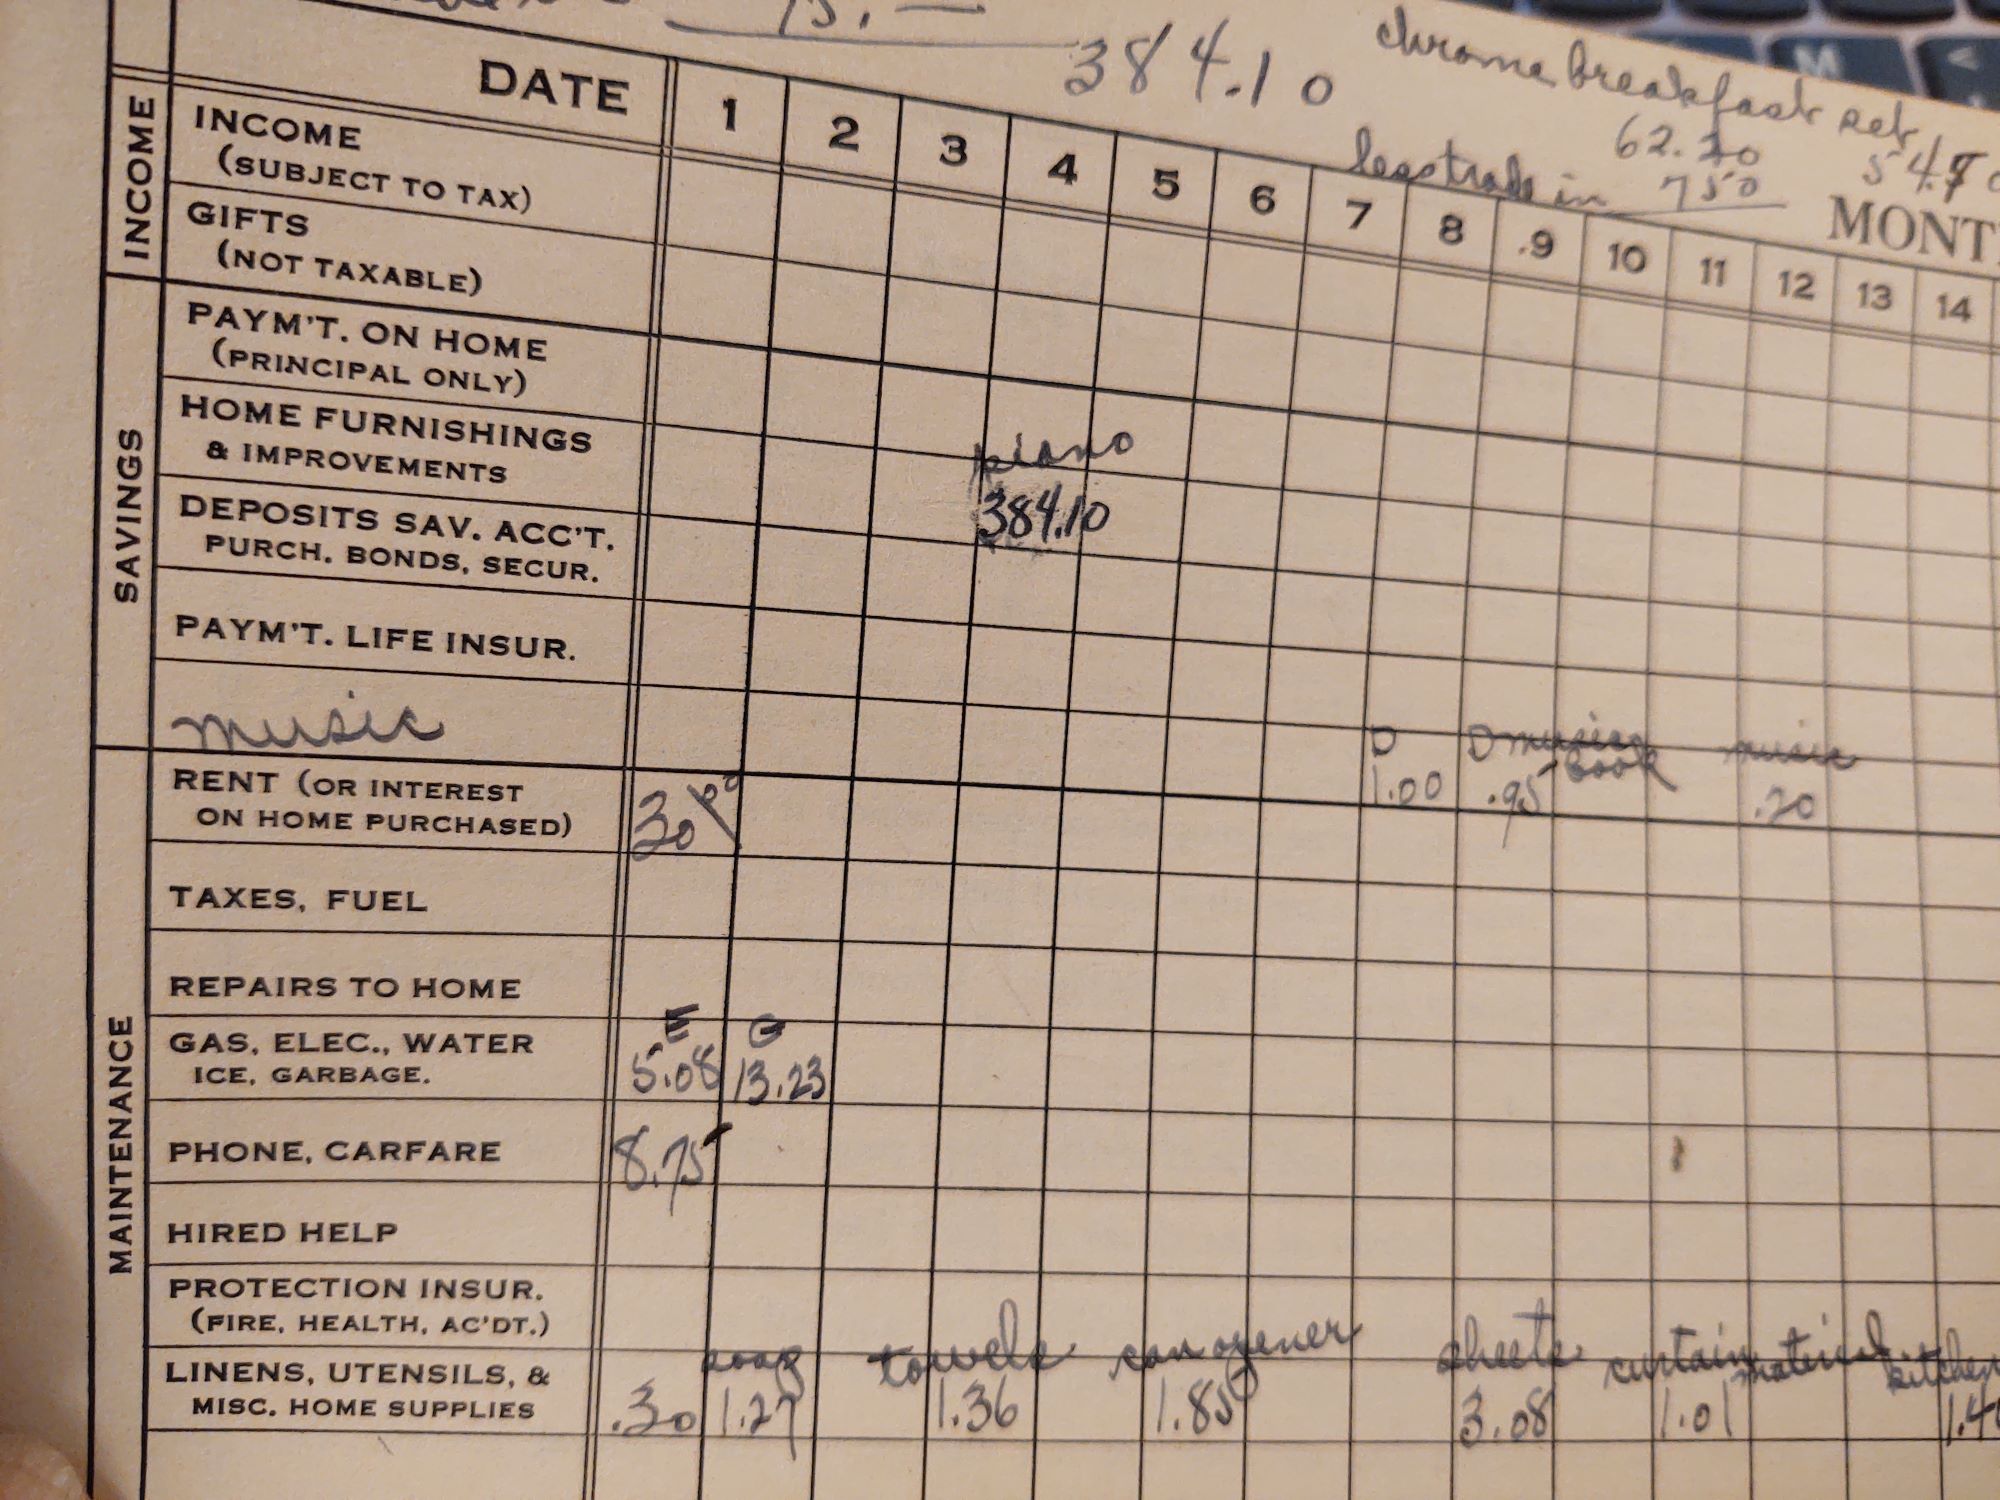 15. —
384.10
chrome breakfast set
62.20
54.70
less trade in 750
MONT
DATE 1 2 3 4 5 6 7 8 9 10 11 12 13 14
INCOME
INCOME
(SUBJECT TO TAX)
GIFTS
(NOT TAXABLE)
SAVINGS
PAYM'T. ON HOME
(PRINCIPAL ONLY)
HOME FURNISHINGS
& IMPROVEMENTS
piano
384.10
DEPOSITS SAV. ACC'T.
PURCH. BONDS, SECUR.
PAYM'T. LIFE INSUR.
music
D D music book music
1.00 .95 .20
MAINTENANCE
RENT (OR INTEREST
ON HOME PURCHASED)
30 pd
TAXES, FUEL
REPAIRS TO HOME
GAS, ELEC., WATER
ICE, GARBAGE.
E G
5.08 13.23
PHONE, CARFARE 8.75
HIRED HELP
PROTECTION INSUR.
(FIRE, HEALTH, AC'DT.)
LINENS, UTENSILS, &
MISC. HOME SUPPLIES
soap towels can opener sheets curtain material kitchen
.30 1.27 1.36 1.85 3.08 1.01 1.4
M <